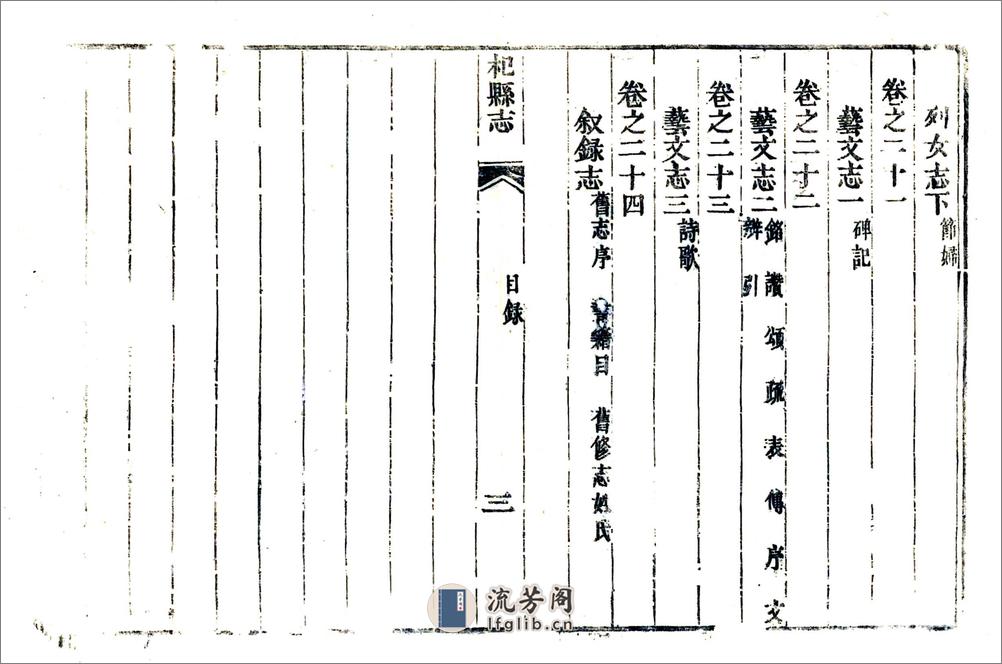 列女志下 節婦
卷之二十一
藝文志一 碑記
卷之二十二
藝文志二 銘 讚 頌 疏 表 傳 序 文 辨 引
卷之二十三
藝文志三 詩歌
卷之二十四
叙録志 舊志序 書籍目 舊修志姓氏
杞縣志
目録
三
流芳阁
lfglib.cn